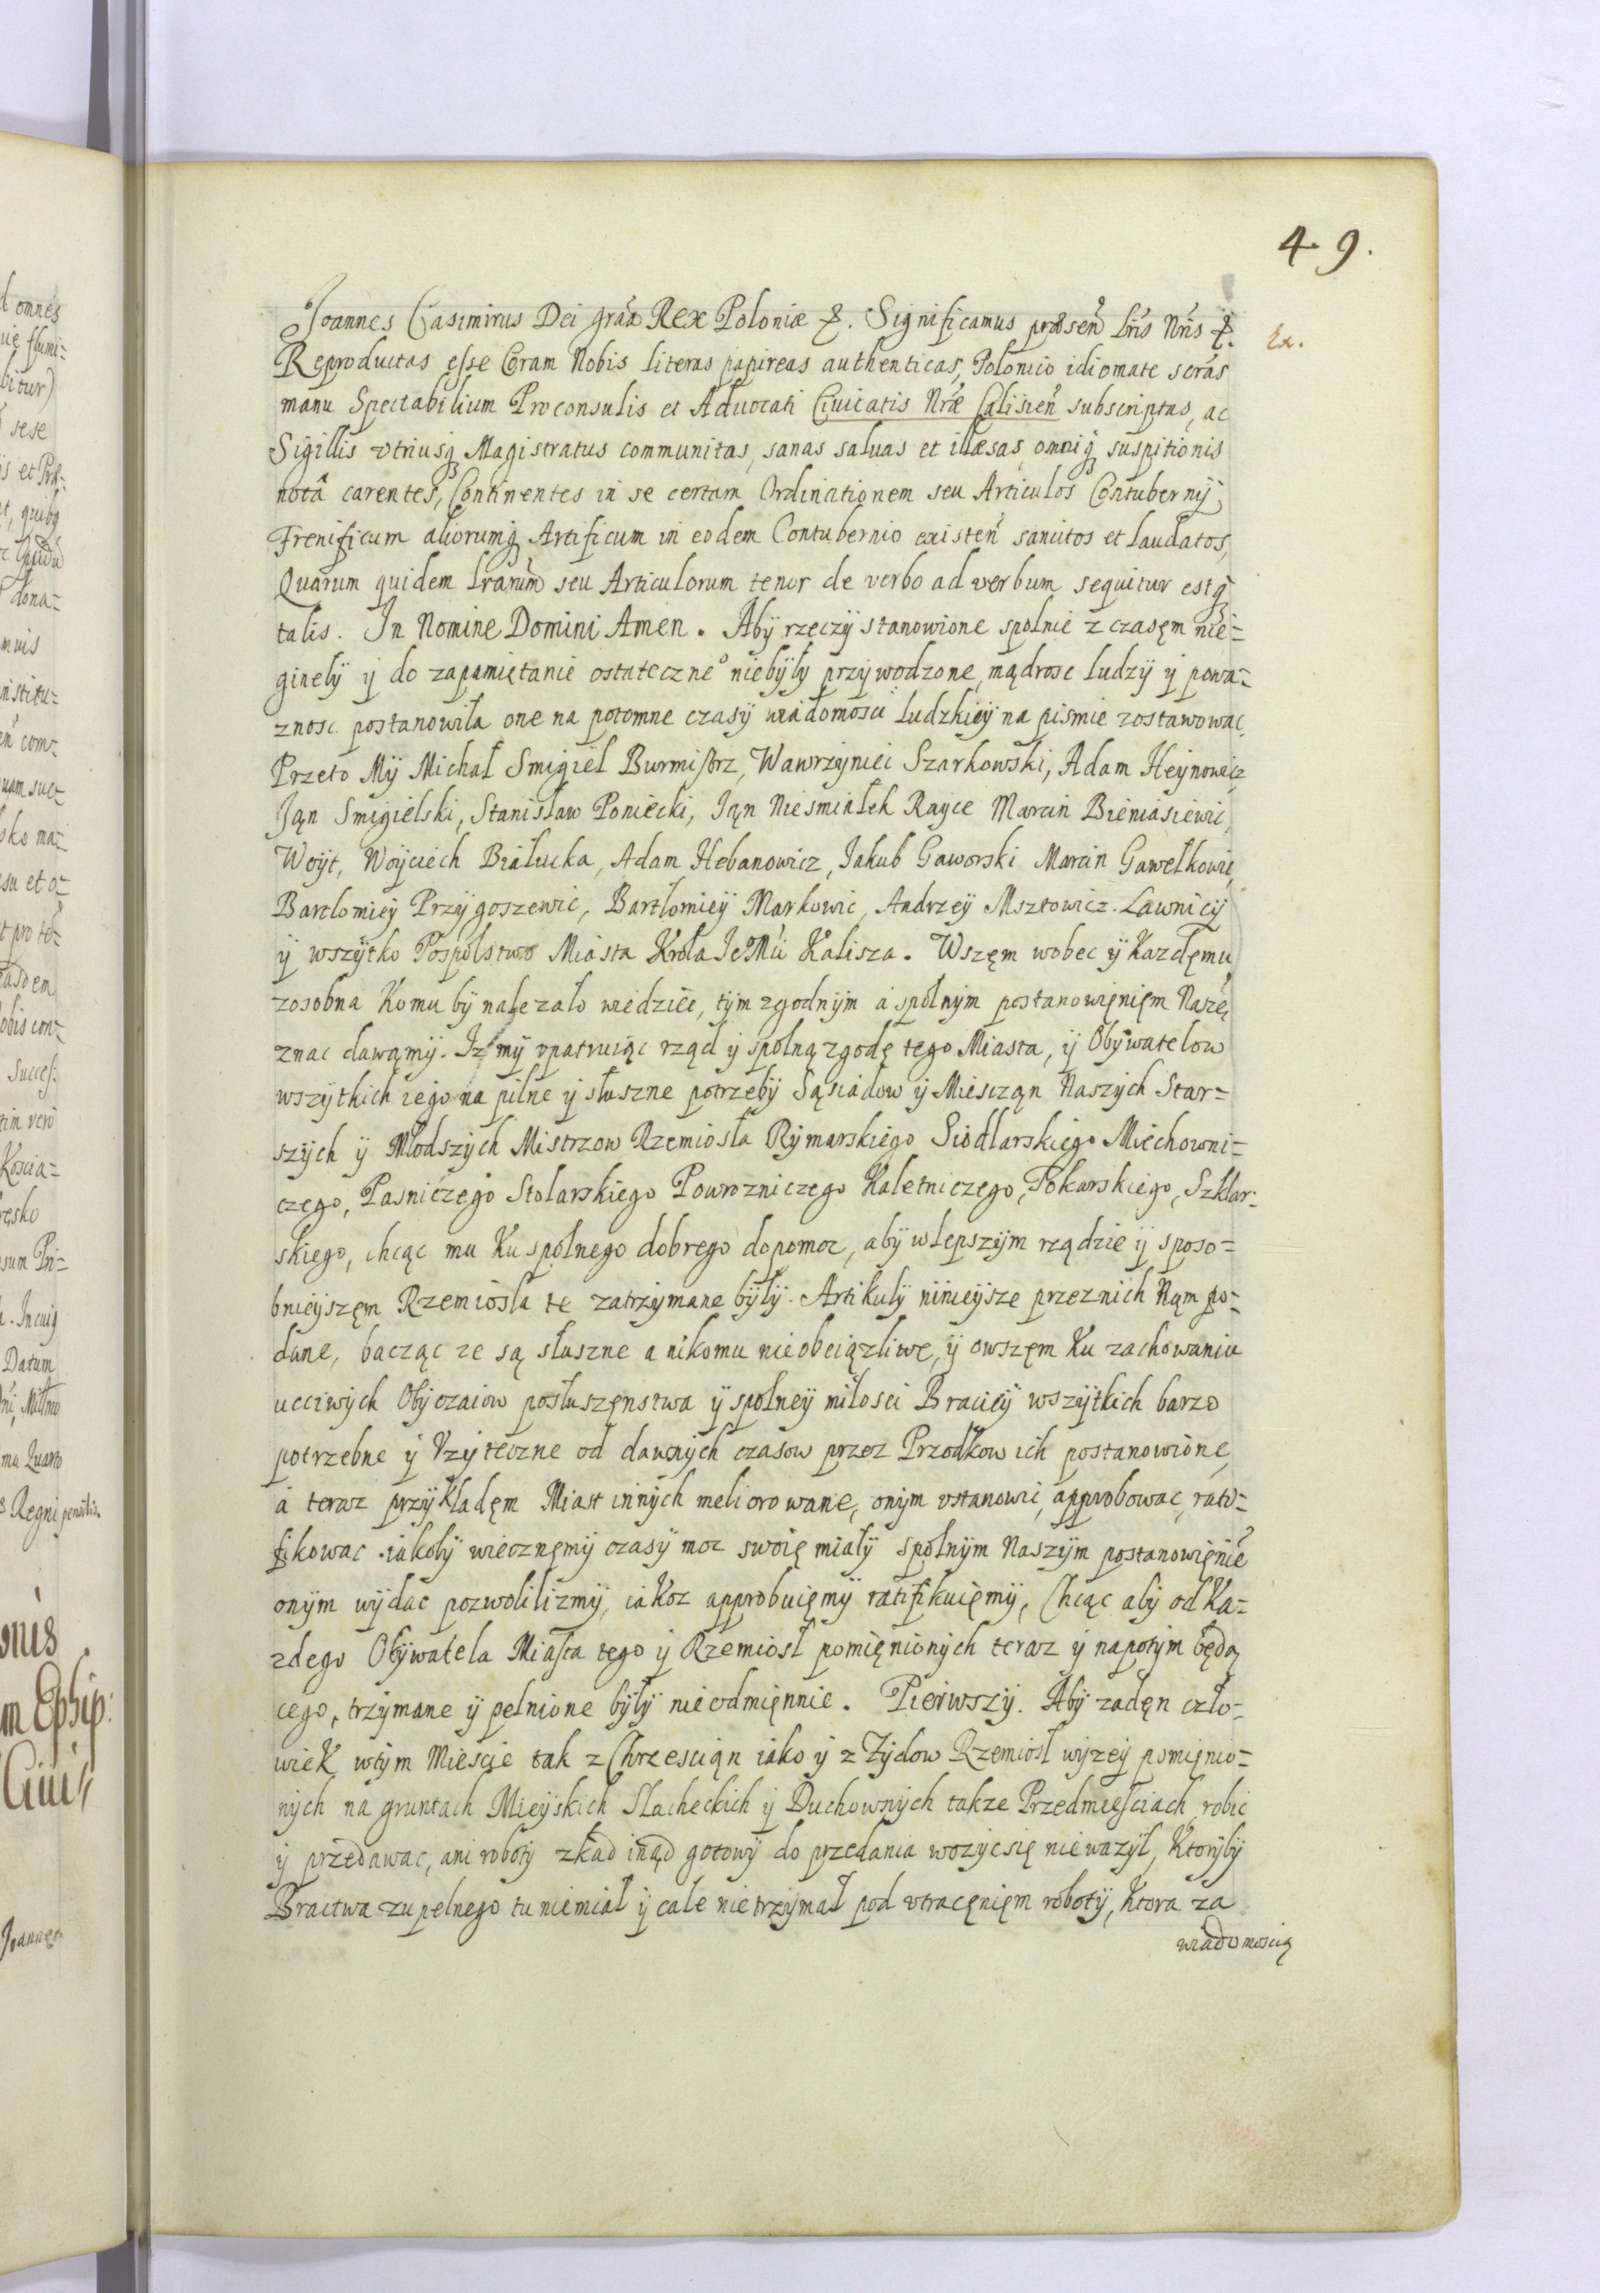 49.
Joannes Casimirus Dei gra͠a Rex Poloniæ &. Significamus præsen͠ Lr͠is Nr͠is &.
Ex.
Reproductas esse Coram Nobis literas papireas authenticas, Polonico idiomate scr͠as
manu Spectabilium Proconsulis et Aduocati Ciuitatis Nr͠æ Calisien͠ subscriptas, ac
Sigillis vtriusq Magistratus communitas, sanas saluas et illæsas, omniq suspitionis
notâ carentes, Continentes in se certam Ordinationem seu Articulos Contubernij
Frenificum aliorumq Artificum in eodem Contubernio existen͠ sancitos et laudatos,
Quarum quidem Lr͠arum͠ seu Articulorum tenor de verbo ad verbum sequitur estq
talis. In Nomine Domini Amen. Aby rzeczy stanowione spolnie z czasęm nie=
ginely ÿ do zapamiętanie ostateczneº niebÿłÿ przÿwodzone, mądrosc ludzÿ ÿ powa=
znosc postanowiła one na potomne czasÿ wiadomosci ludzkieÿ na pismie zostawowac
Przeto Mÿ Michał Smigiel Burmistrz, Wawrzÿniec Szarkowski, Adam Heÿnowicz
Ján Smigielski, Stanisław Poniecki, Ján Niesmiałek Raÿce Marcin Bieniasiewic,
Woÿt, Woÿciech Białucka, Adam Hebanowicz, Jakub Gaworski Marcin Gawełkowic,
Bartlomieÿ Przÿgoszewic, Bartłomieÿ Markowic, Andrzeÿ Msztowicz. Lawnicÿ
ÿ wszÿtko Pospolstwo Miasta Krola Je Mci Kalisza. Wszęm wobec ÿ Kazdęmu
zosobna Komu bÿ nalezało wiedziec, tÿm zgodnÿm a spolnÿm postanowięnięm Nasze͠
znac dawąmÿ. Iz mÿ vpatruiąc rząd ÿ spolną zgodę tego Miasta, ÿ Obÿwatelow
wszÿtkich iego na pilne ÿ słuszne potrzebÿ Sąsiadow ÿ Miescząn Naszÿch Star=
szÿch ÿ Młodszÿch Mistrzow Rzemiosła Rÿmarskiego Siodlarskiego Miechowni=
czego, Pasniczego Stolarskiego Powrozniczego Kaletniczego, Tokarskiego, Szklar=
skiego, chcąc mu Ku spolnego dobrego dopomoc, abÿ wlepszÿm rządzie ÿ sposo=
bnieÿszęm Rzemiosła te zatrzÿmane bÿłÿ. Artikułÿ ninieÿsze przeznich Nąm po=
dane, bacząc ze są słuszne a nikomu nieobciązliwe, ÿ owszęm Ku zachowaniu
ucciwÿch Obÿczaiow posłuszęnstwa ÿ spolneÿ miłosci Bracieÿ wszÿtkich barzo
potrzebne ÿ Vzÿteczne od dawnÿch czasow przez Przodkow ich postanowione,
a teraz przÿkładęm Miast innÿch meliorowane, onÿm vstanowic, approbowac, rati=
fikowac iakobÿ wiecznęmÿ czasÿ moc swoię miałÿ spolnÿm Naszÿm postanowięnie͠
onÿm wÿdac pozwolilizmÿ, iakoz approbuięmÿ ratifikuięmÿ, Chcąc abÿ od Ka=
zdego Obÿwatela Miasta tego ÿ Rzemiosł pomięnionÿch teraz ÿ napotÿm będą
cego, trzÿmane ÿ pełnione bÿłÿ nieodmięnnie. Pierwszÿ. Abÿ zadęn czło=
wiek wtÿm Miescie tak z Chrzescian iako ÿ z Zÿdow Rzemiosł wÿzeÿ pomięnio=
nÿch na gruntach Mieÿskich Slacheckich ÿ Duchownÿch takze Przedmiesciach robic
ÿ przedawac, ani robotÿ zkąd inąd gotowÿ do przedania wozÿc się niewazÿł, Ktorÿbÿ
Bractwa zupełnego tu niemiał ÿ cale nietrzÿmał pod vtracęnięm robotÿ, Ktora za
wiadomoscią